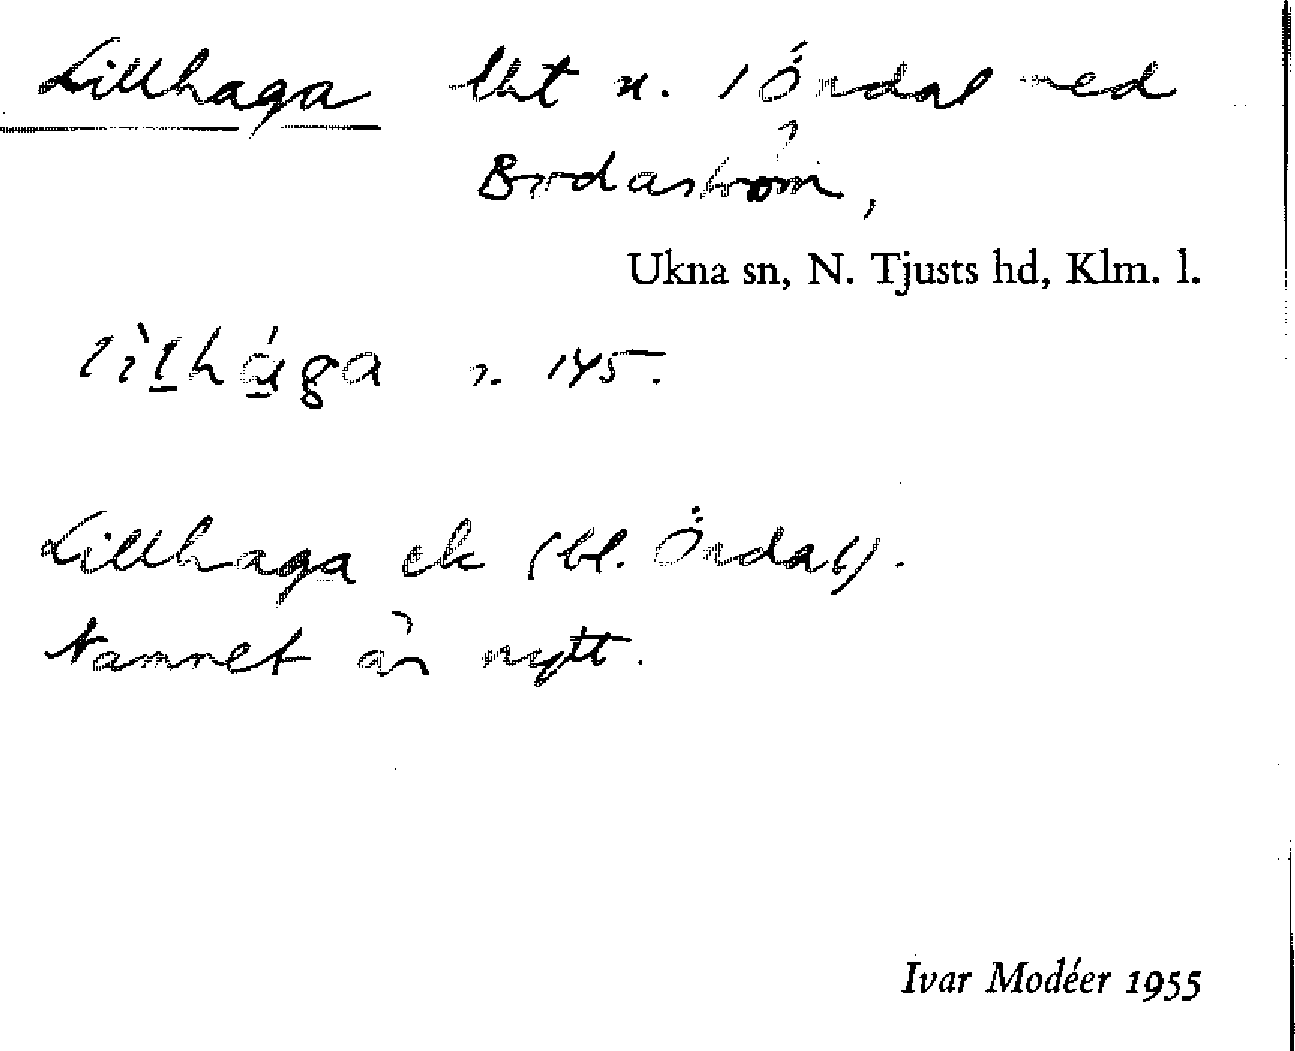 Lillhaga lht n. 1 Öndal med
Bodaström,
Ukna sn, N. Tjusts hd, Klm. l.
lìl̲há̲ga n. 145.
Lillhaga ek (bl. Öndal).
Namnet är nytt.
Ivar Modéer 1955